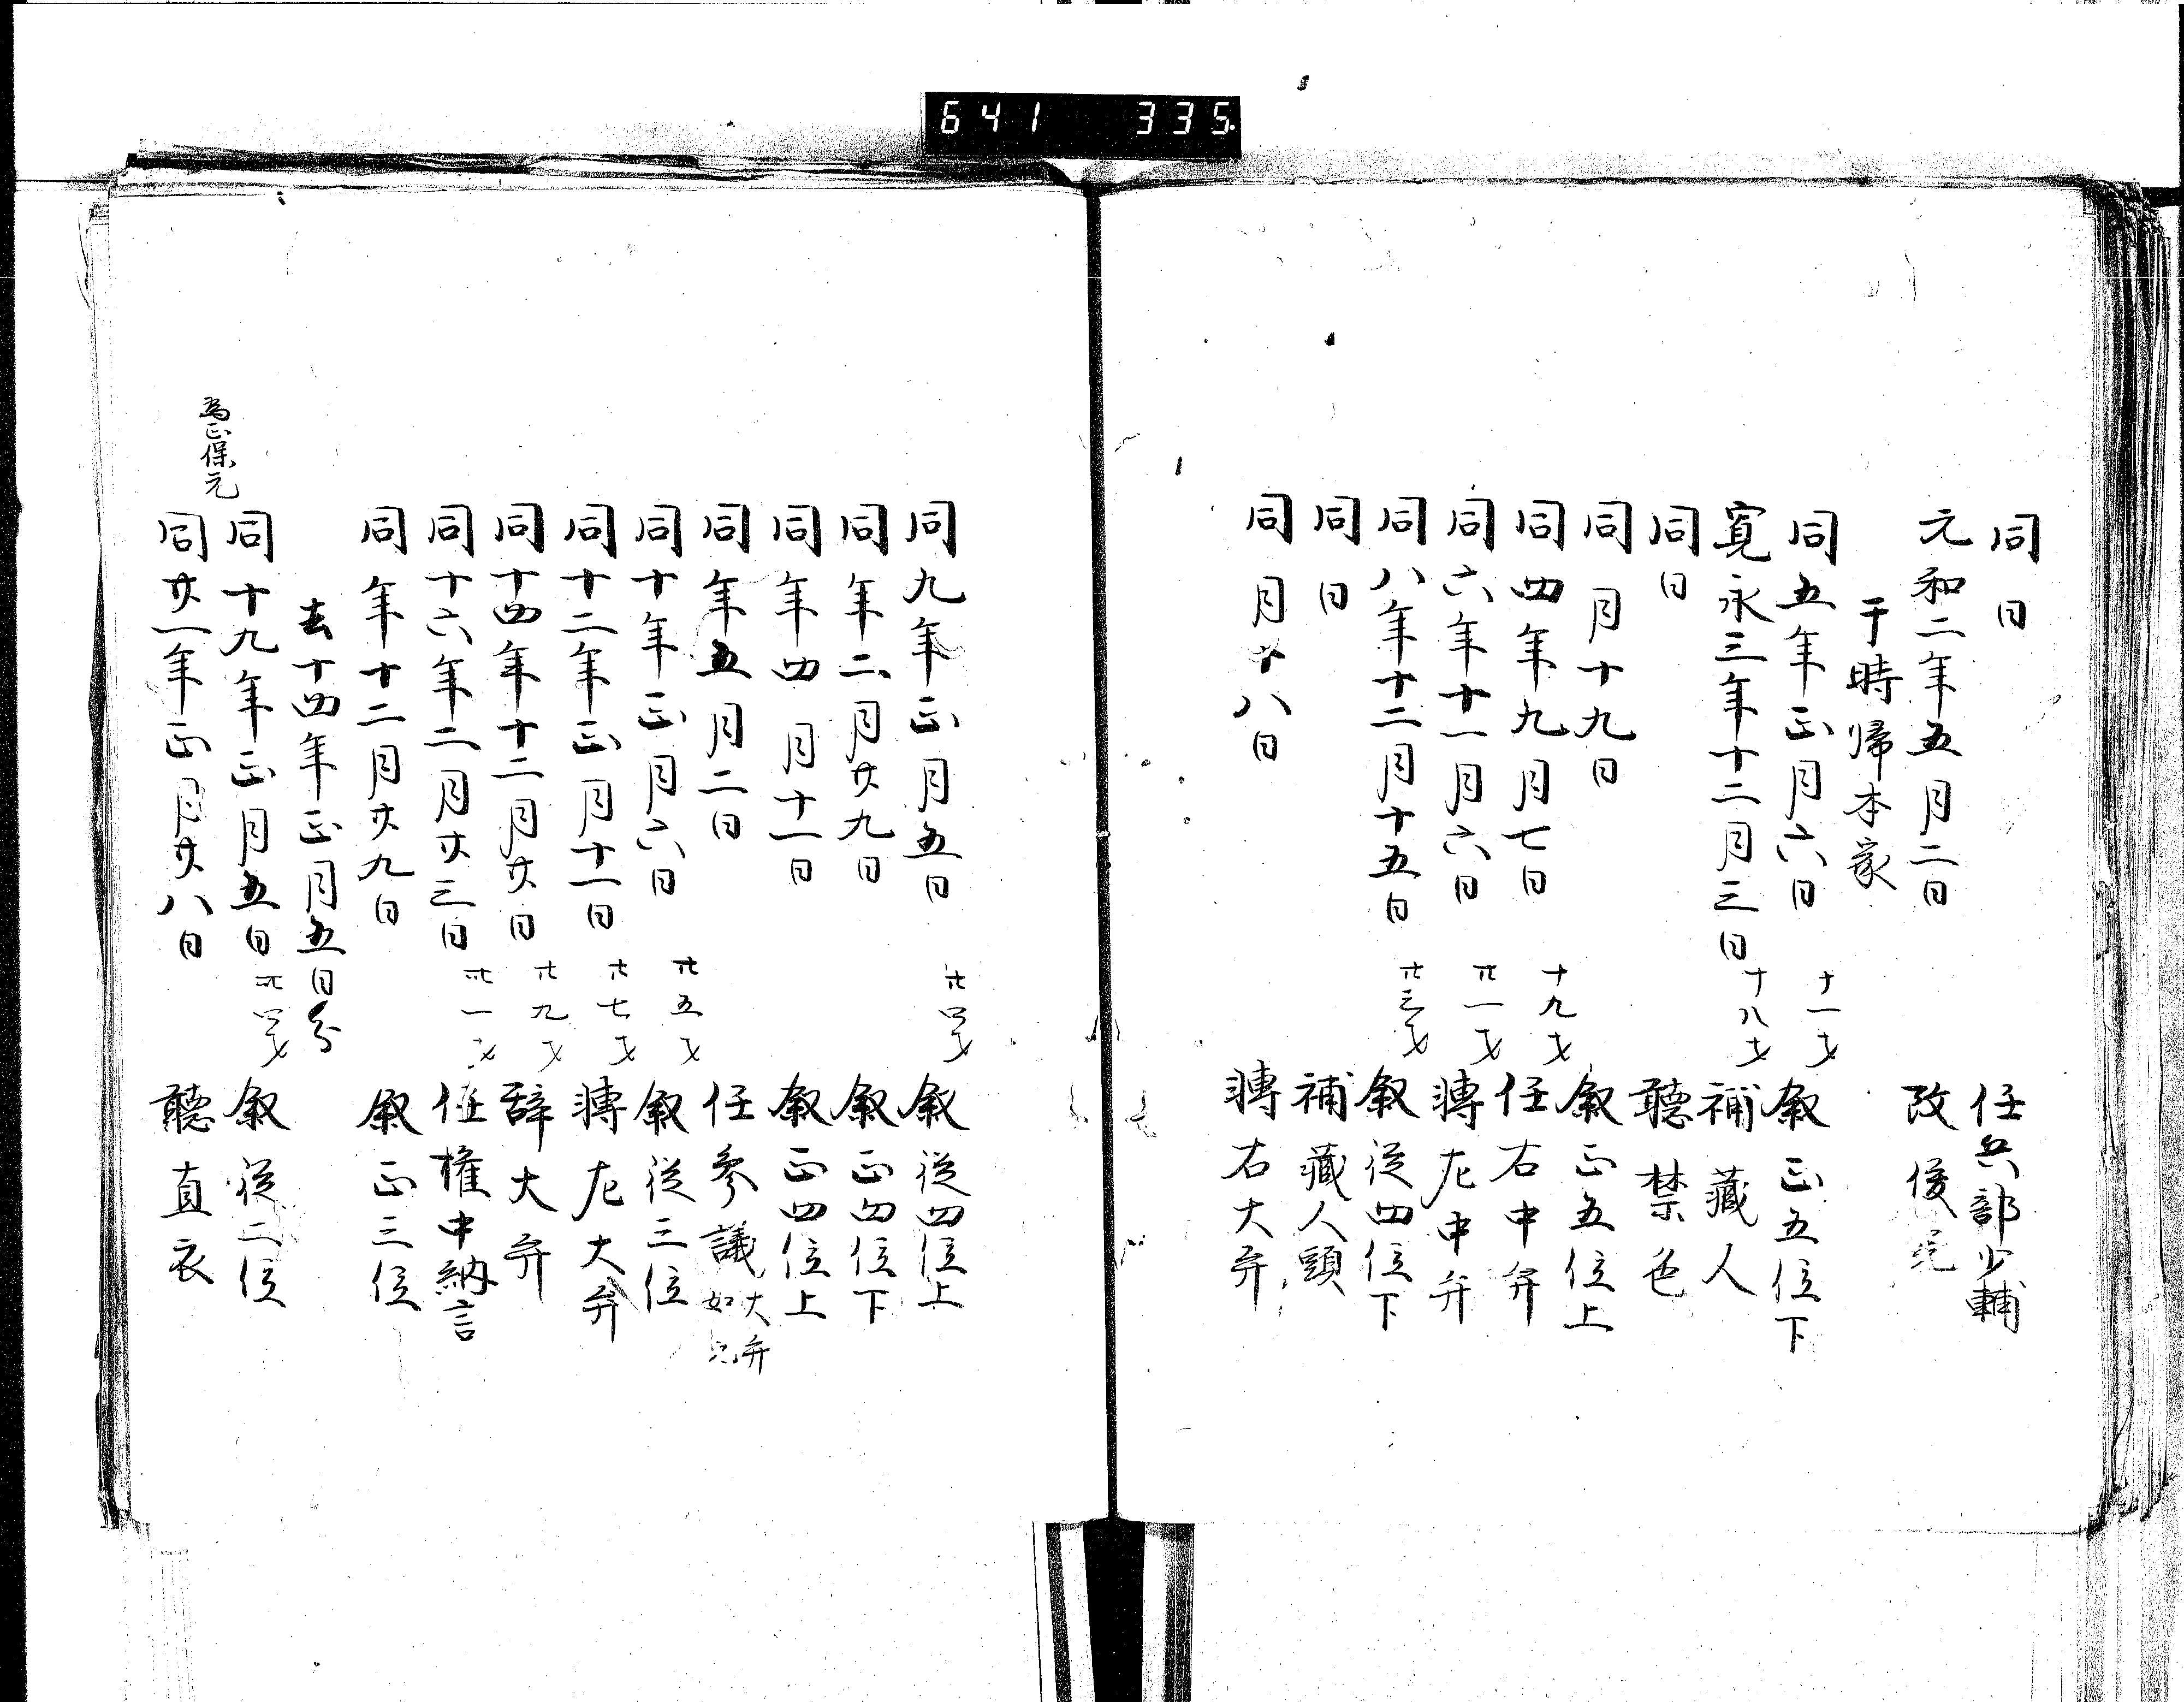 641 335
同日 任兵部少輔
元和二年五月二日 改俊完
于時帰本家
同五年正月六日 十一才 叙正五位下
寛永三年十二月三日 十八才 補蔵人
同日 聴禁色
同月十九日 叙正五位上
同四年九月七日 十九才 任右中弁
同六年十一月六日 廿一才 轉左中弁
同八年十二月十五日 廿三才 叙従四位下
同日 補蔵人頭
同月廿八日 轉右大弁
同九年正月五日 廿四才 叙従四位上
同年二月廿九日 叙正四位下
同年四月十一日 叙正四位上
同年五月二日 任参議 大弁如元
同十年正月六日 廿五才 叙従三位
同十二年正月十一日 廿七才 轉左大弁
同十四年十二月廿日 廿九才 辞大弁
同十六年二月廿三日 卅一才 任権中納言
同年十二月廿九日 叙正三位
去十四年正月五日分
同十九年正月五日 卅四才 叙従二位
為正保元
同廿一年正月廿八日 聴直衣